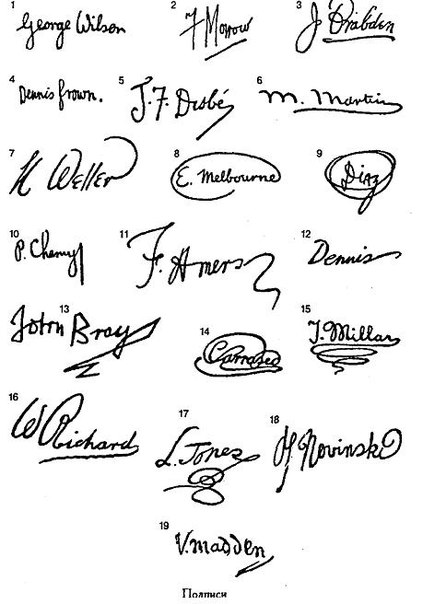 1 George Wilson
2 F Morrow
3 J Drabden
4 Dennis Frown.
5 J.F. Dusbé
6 M. Martin
7 K Weller
8 E. Melbourne
9 Diaz
10 P. Cheny
11 F. Amers
12 Dennis
13 John Bray
14 Carrasco
15 J. Millar
16 W Richard
17 L. Jones
18 H. Novinski
19 V. madden
Подписи